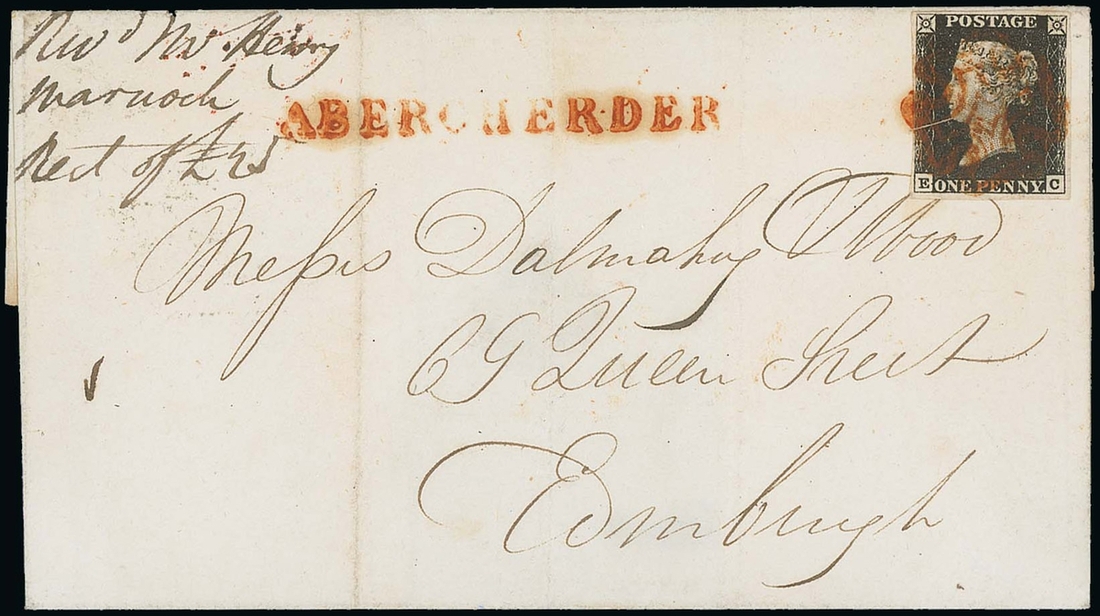 Revd Mr. Henry
Marnoch
Rect of £25
ABERCHERDER
POSTAGE
E ONE PENNY C
Messrs Dalmahoy & Wood
69 Queen Street
Edinburgh